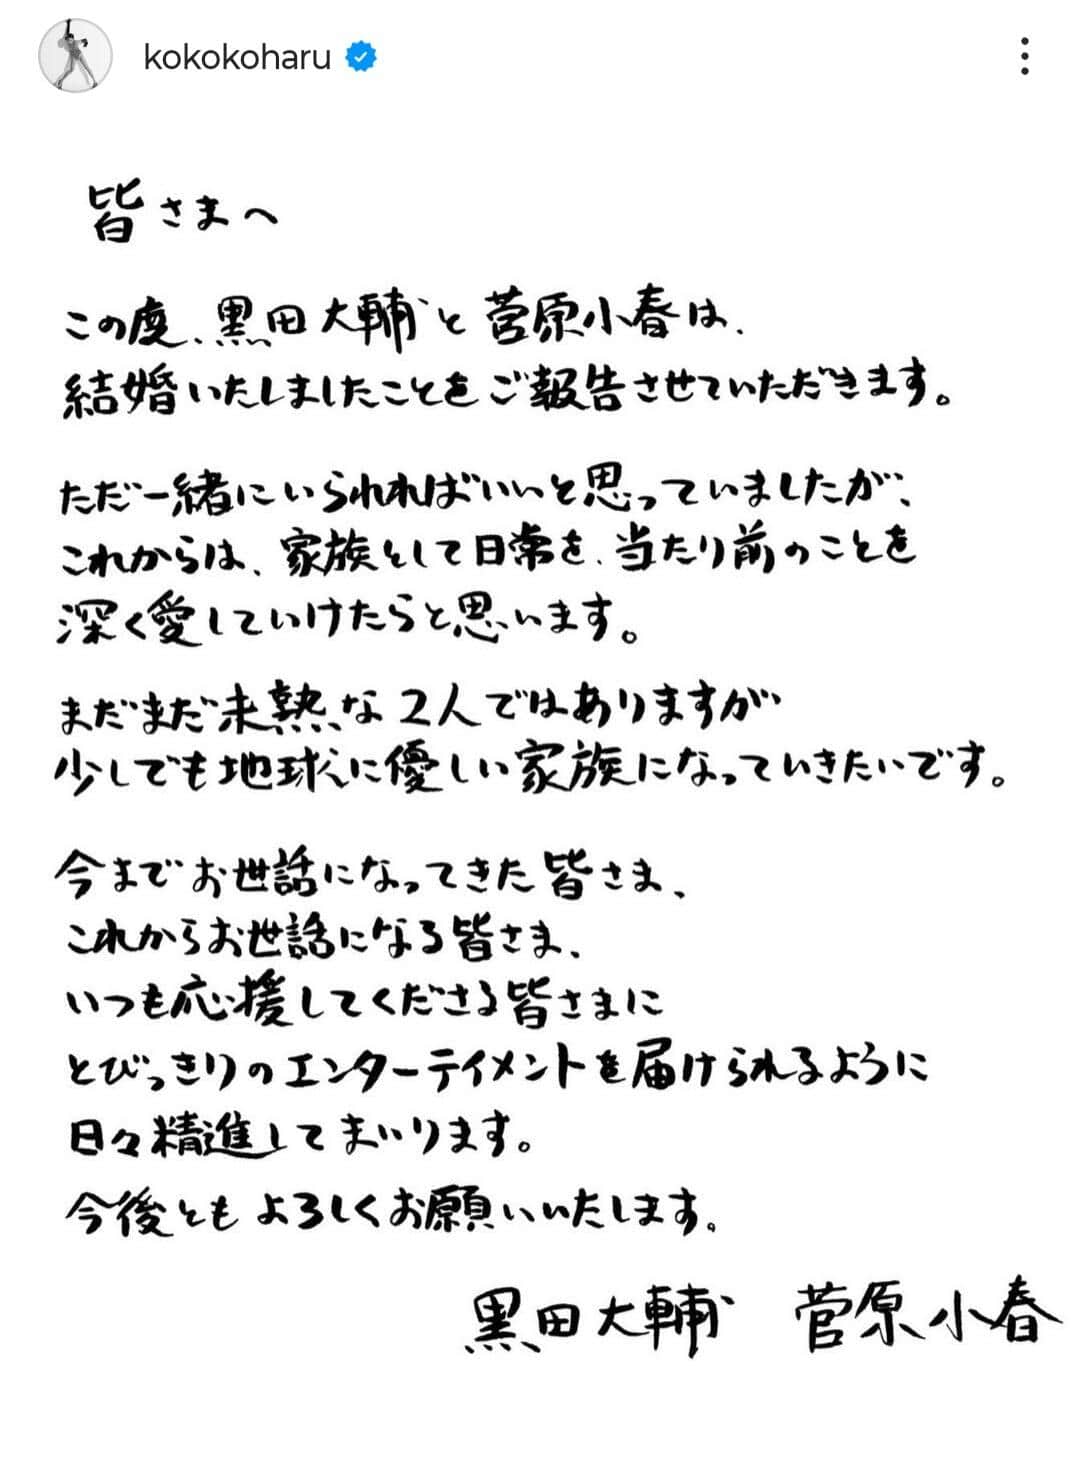 kokokoharu
皆さまへ
この度、黒田大輔と菅原小春は、
結婚いたしましたことをご報告させていただきます。
ただ一緒にいられればいいと思っていましたが、
これからは、家族として日常を、当たり前のことを
深く愛していけたらと思います。
まだまだ未熟な2人ではありますが
少しでも地球に優しい家族になっていきたいです。
今までお世話になってきた皆さま、
これからお世話になる皆さま、
いつも応援してくださる皆さまに
とびっきりのエンターテイメントを届けられるように
日々精進してまいります。
今後ともよろしくお願いいたします。
黒田大輔 菅原小春